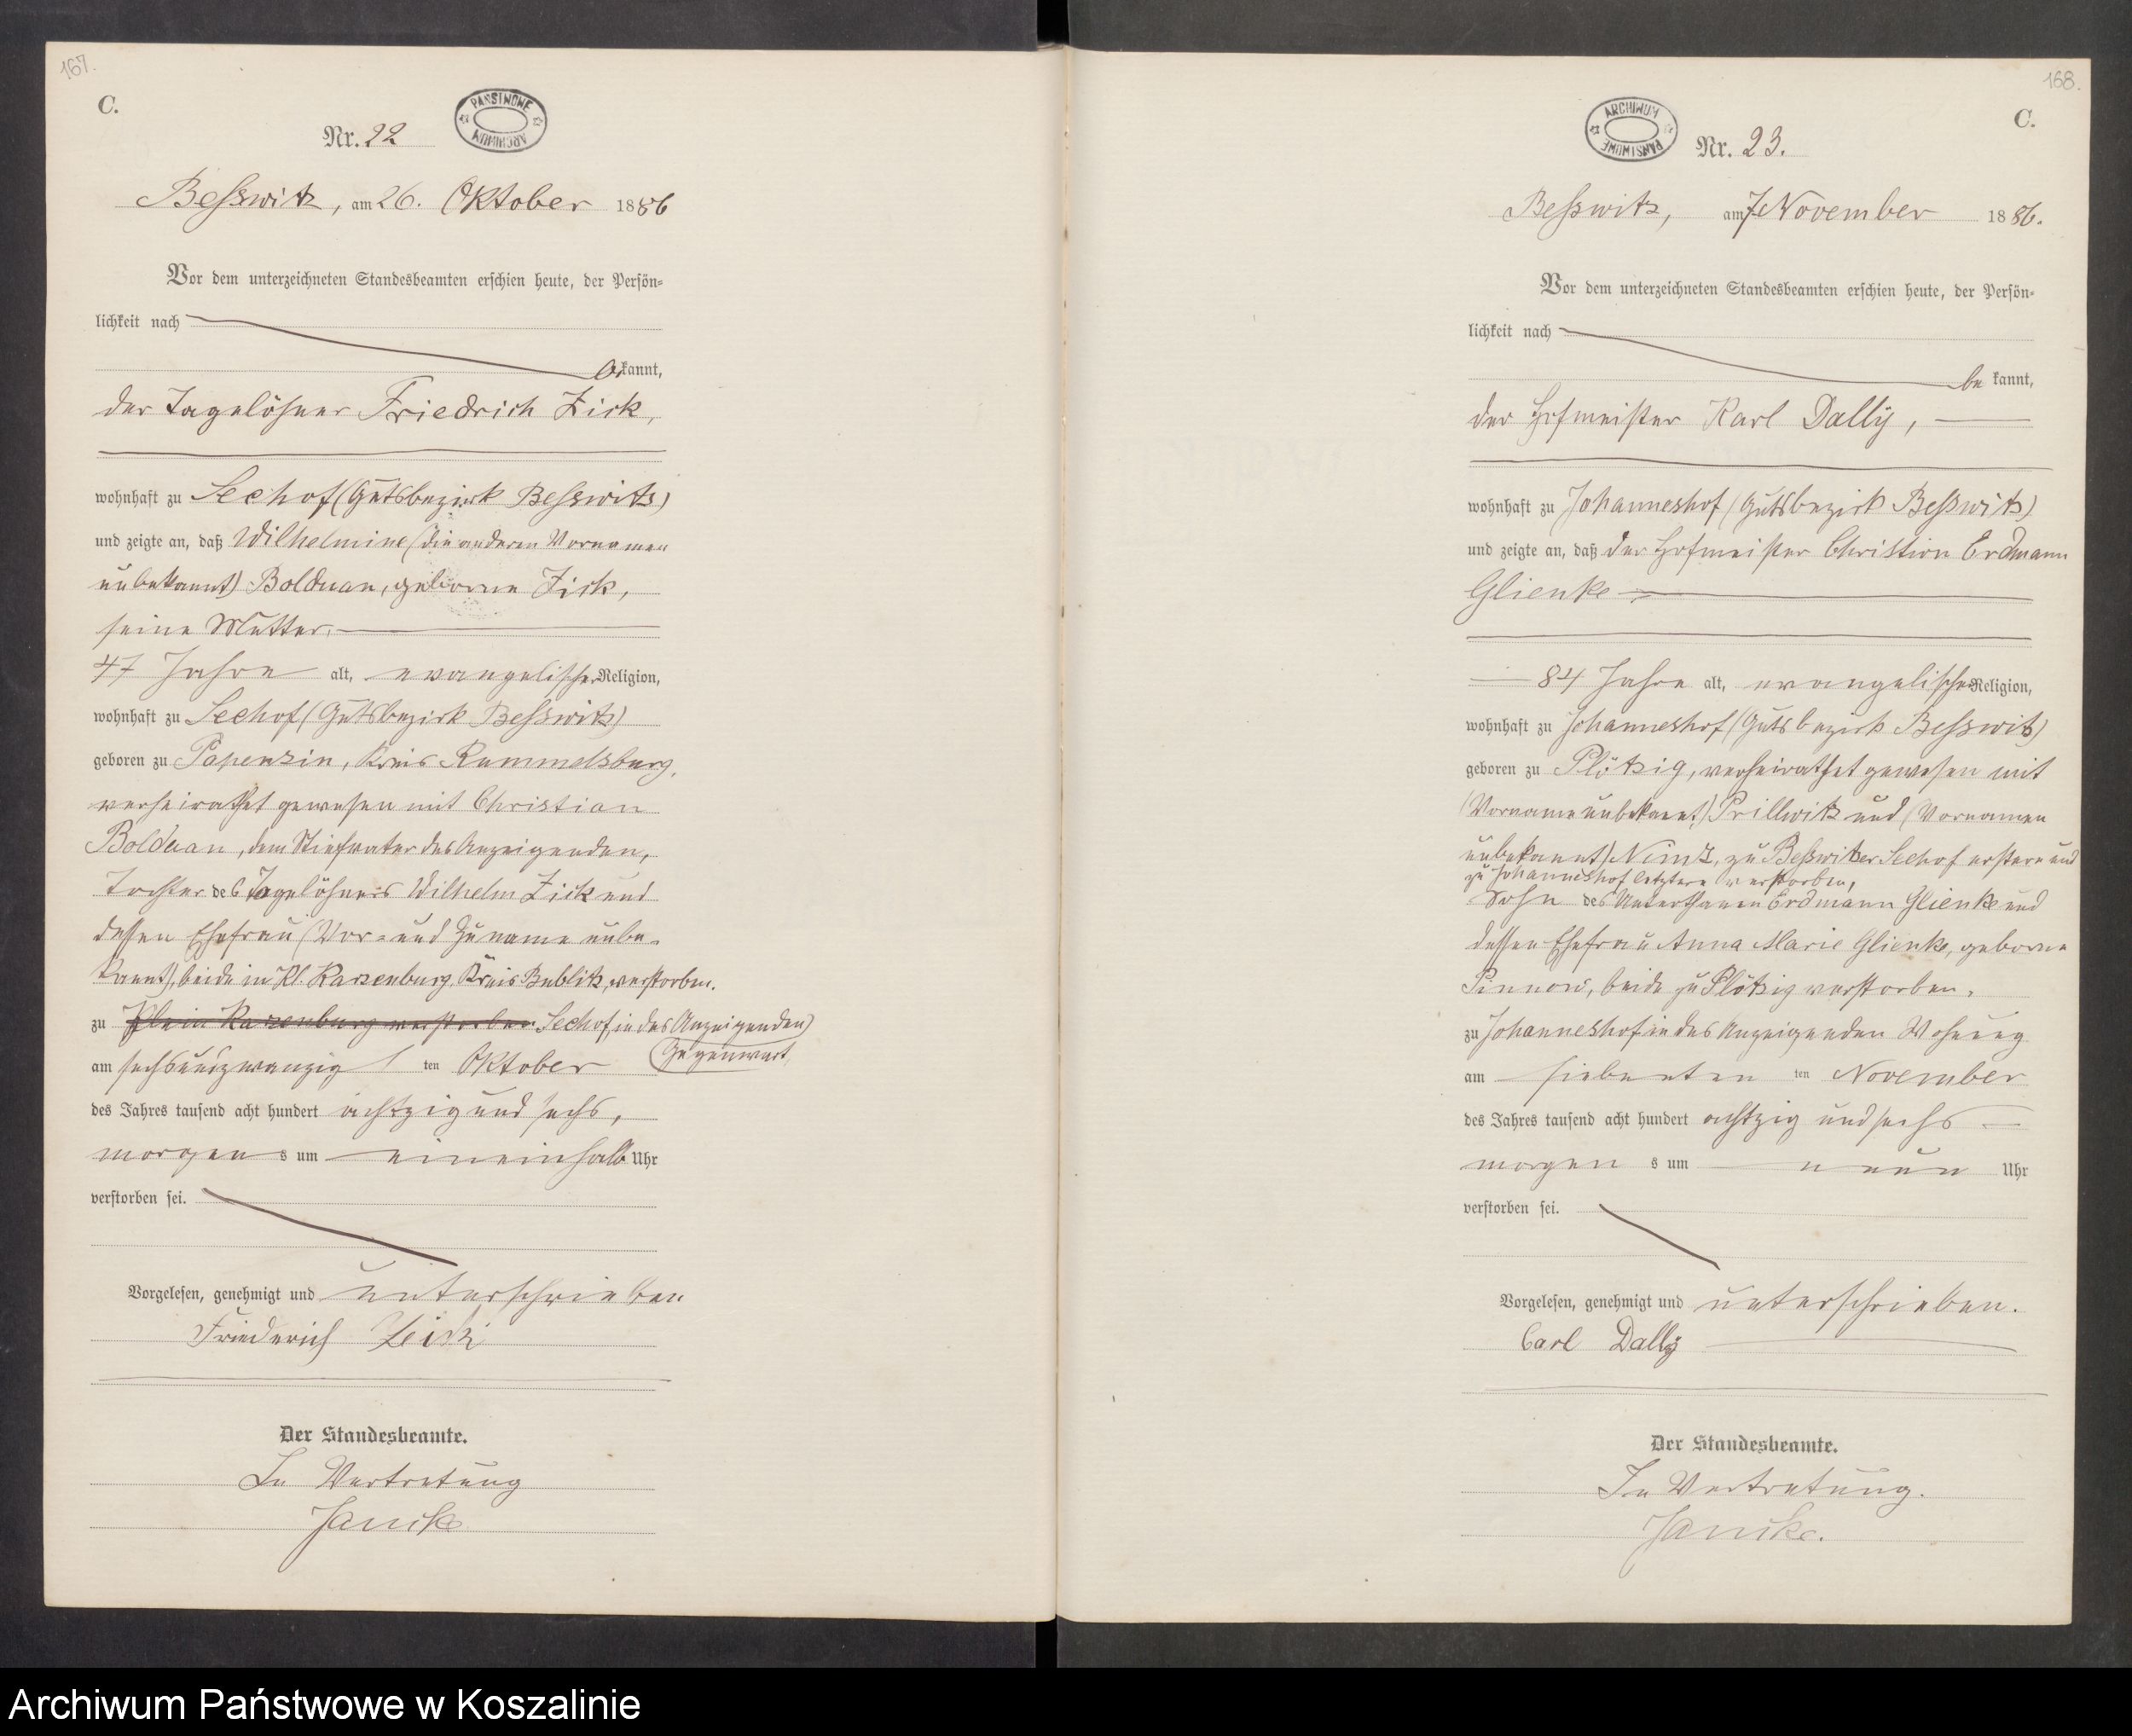 167.
C.
PAŃSTWOWE ARCHIWUM
Nr. 22
Beßwitz, am 26. Oktober 1886
Vor dem unterzeichneten Standesbeamten erschien heute, der Persön-
lichkeit nach
kannt,
der Tagelöhner Friedrich Zick,
wohnhaft zu Seehof (Gutsbezirk Beßwitz)
und zeigte an, daß Wilhelmine (die anderen Vornamen
unbekannt) Bolduan, geborne Zick,
seine Mutter,
47 Jahre alt, evangelischer Religion,
wohnhaft zu Seehof (Gutsbezirk Beßwitz)
geboren zu Papenzin, Kreis Rummelsburg,
verheirathet gewesen mit Christian
Bolduan, dem Stiefvater des Anzeigenden,
Tochter des Tagelöhners Wilhelm Zick und
dessen Ehefrau (Vor- und Zuname unbe-
kannt), beide in Kl. Karzenburg, Kreis Bublitz, verstorben.
zu Klein Karzenburg verstorben Seehof, in des Anzeigenden
Gegenwart
am sechsundzwanzig ten Oktober
des Jahres tausend acht hundert achtzig und sechs,
morgens um eineinhalb Uhr
verstorben sei.
Vorgelesen, genehmigt und unterschrieben
Friederich
Der Standesbeamte.
In Vertretung
Janike
168.
C.
ARCHIWUM PAŃSTWOWE
Nr. 23.
Beßwitz, am 7 November 1886.
Vor dem unterzeichneten Standesbeamten erschien heute, der Persön-
lichkeit nach
be kannt,
der Hofmeister Karl Dally,
wohnhaft zu Johanneshof (Gutsbezirk Beßwitz)
und zeigte an, daß der Hofmeister Christion Erdmann
Glienke
84 Jahre alt, evangelischer Religion,
wohnhaft zu Johanneshof (Gutsbezirk Beßwitz)
geboren zu Plötzig, verheirathet gewesen mit
(Vorname unbekannt) Prillwitz und (Vornamen
unbekannt) Nimz, zu Beßwitzer Seehof erstere und
zu Johanneshof letztere verstorben,
Sohn des Unterthanen Erdmann Glienke und
dessen Ehefrau Anna Marie Glienke, geborne
Pinnow, beide zu Plötzig verstorben,
zu Johanneshof in des Anzeigenden Wohnung
am siebenten ten November
des Jahres tausend acht hundert achtzig und sechs
morgen s um neun Uhr
verstorben sei.
Vorgelesen, genehmigt und unterschrieben.
Carl Dally
Der Standesbeamte.
In Vertretung.
Janike.
Archiwum Państwowe w Koszalinie